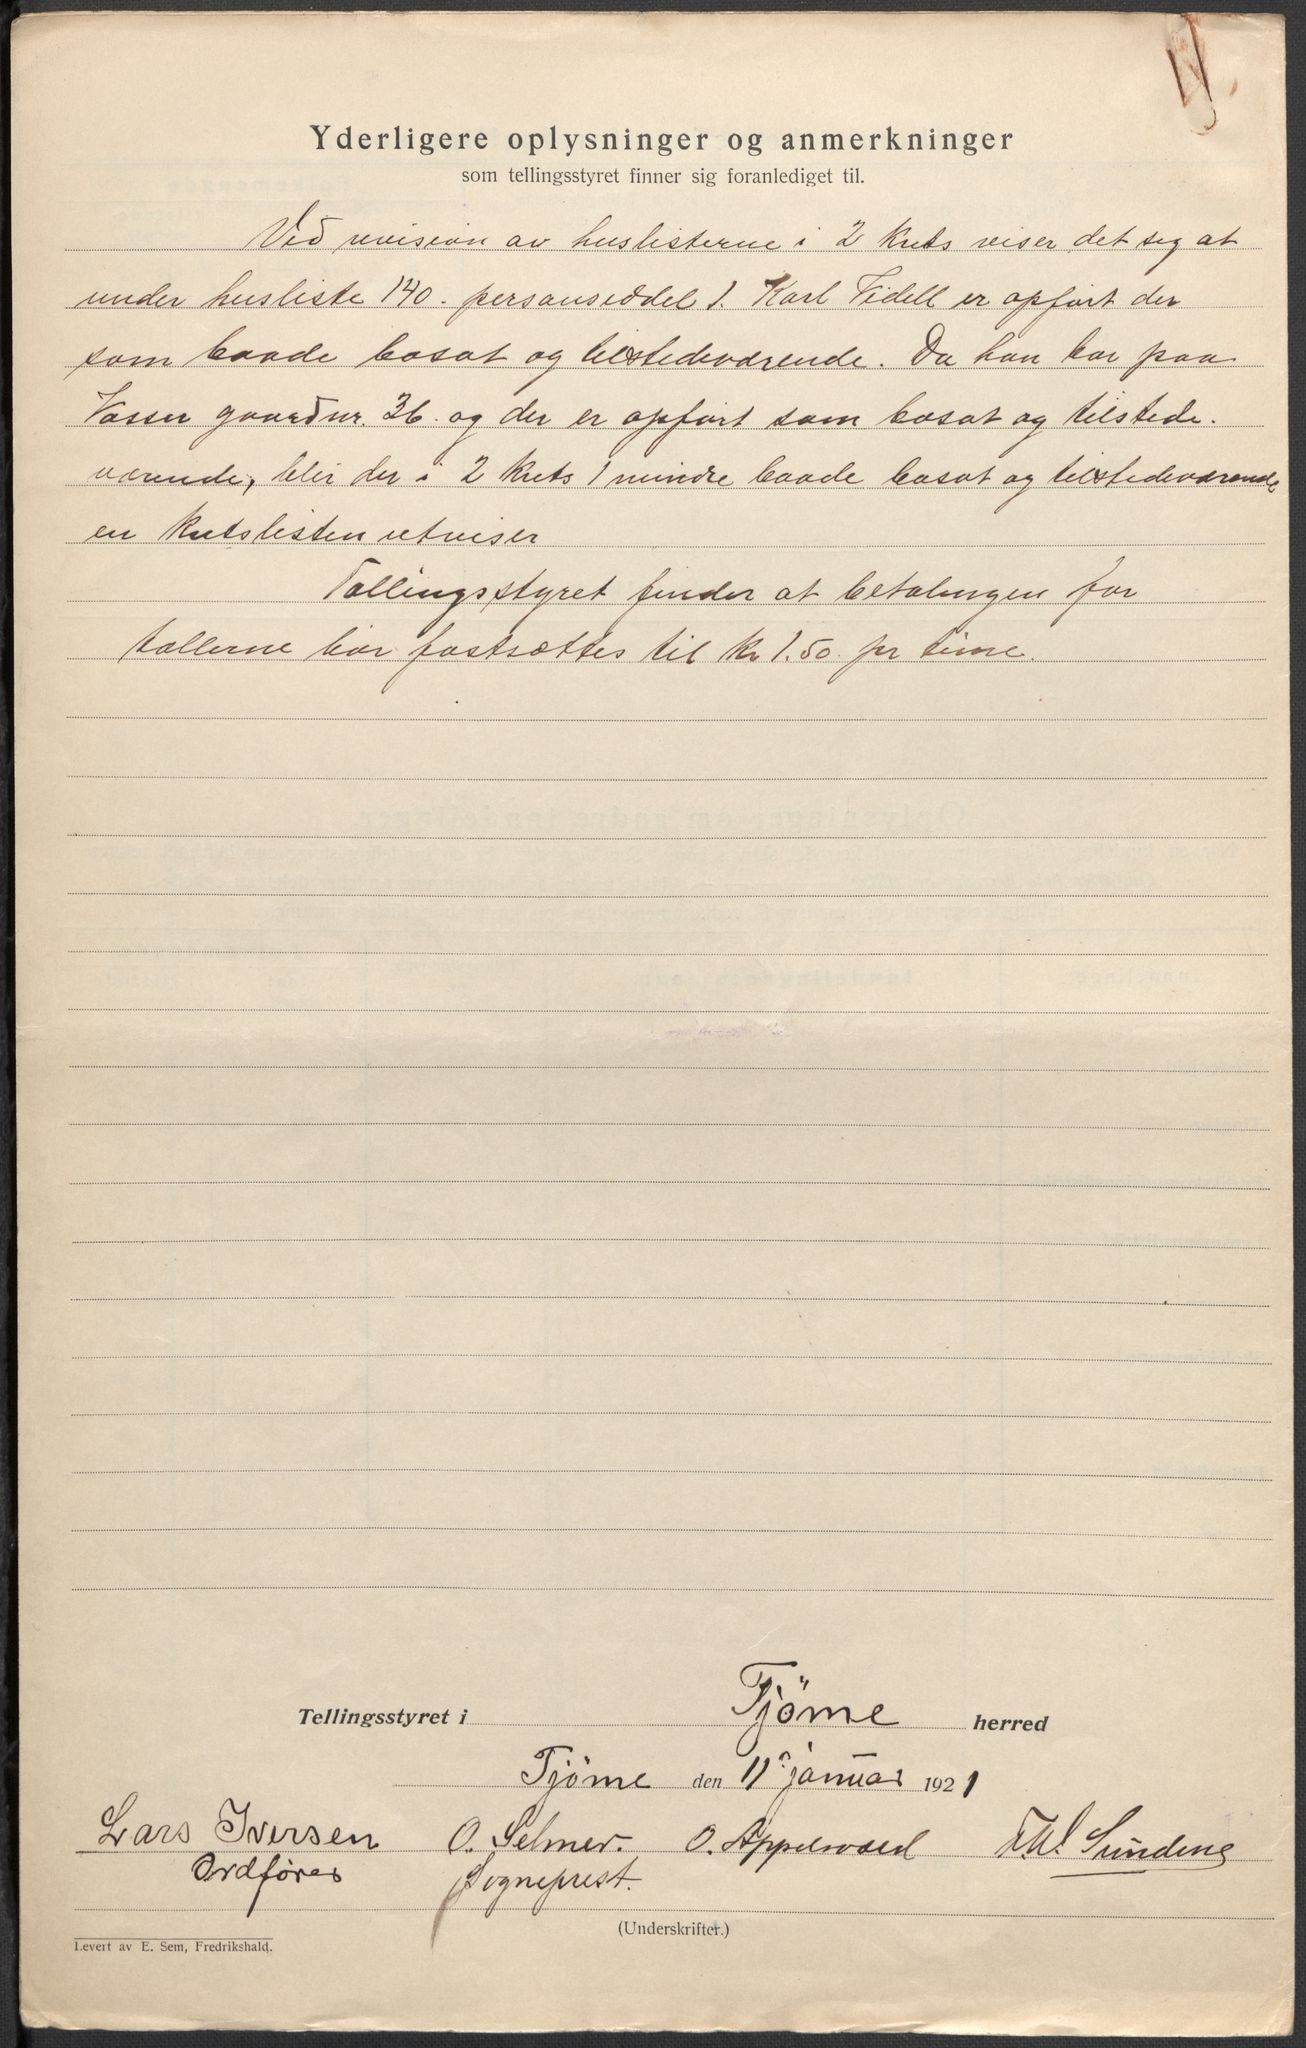 Yderligere oplysninger og anmerkninger
som tellingsstyret finner sig foranlediget til.
Ved revision av huslisterne i 2 krets viser det sig at
under husliste 140. personseddel 1. Karl Fidell er opført der
som baade bosat og tilstedeværende. Da han bor paa
Vasser gaardnr. 36. og der er opført som bosat og tilstede.
værende, blir der i 2 krets 1 mindre baade bosat og tilstedeværende
en kretslisten utviser
Tellingsstyret finder at betalingen for
tællerne bør fastsættes til kr 1.50 pr time.
Tellingsstyret i Tjöme herred
Tjöme den 11 januar 1921
Lars Iversen O. Selmer. O. Appelvold Sundene
Ordfører Sogneprest.
(Underskrifter.)
Levert av E. Sem, Fredrikshald.